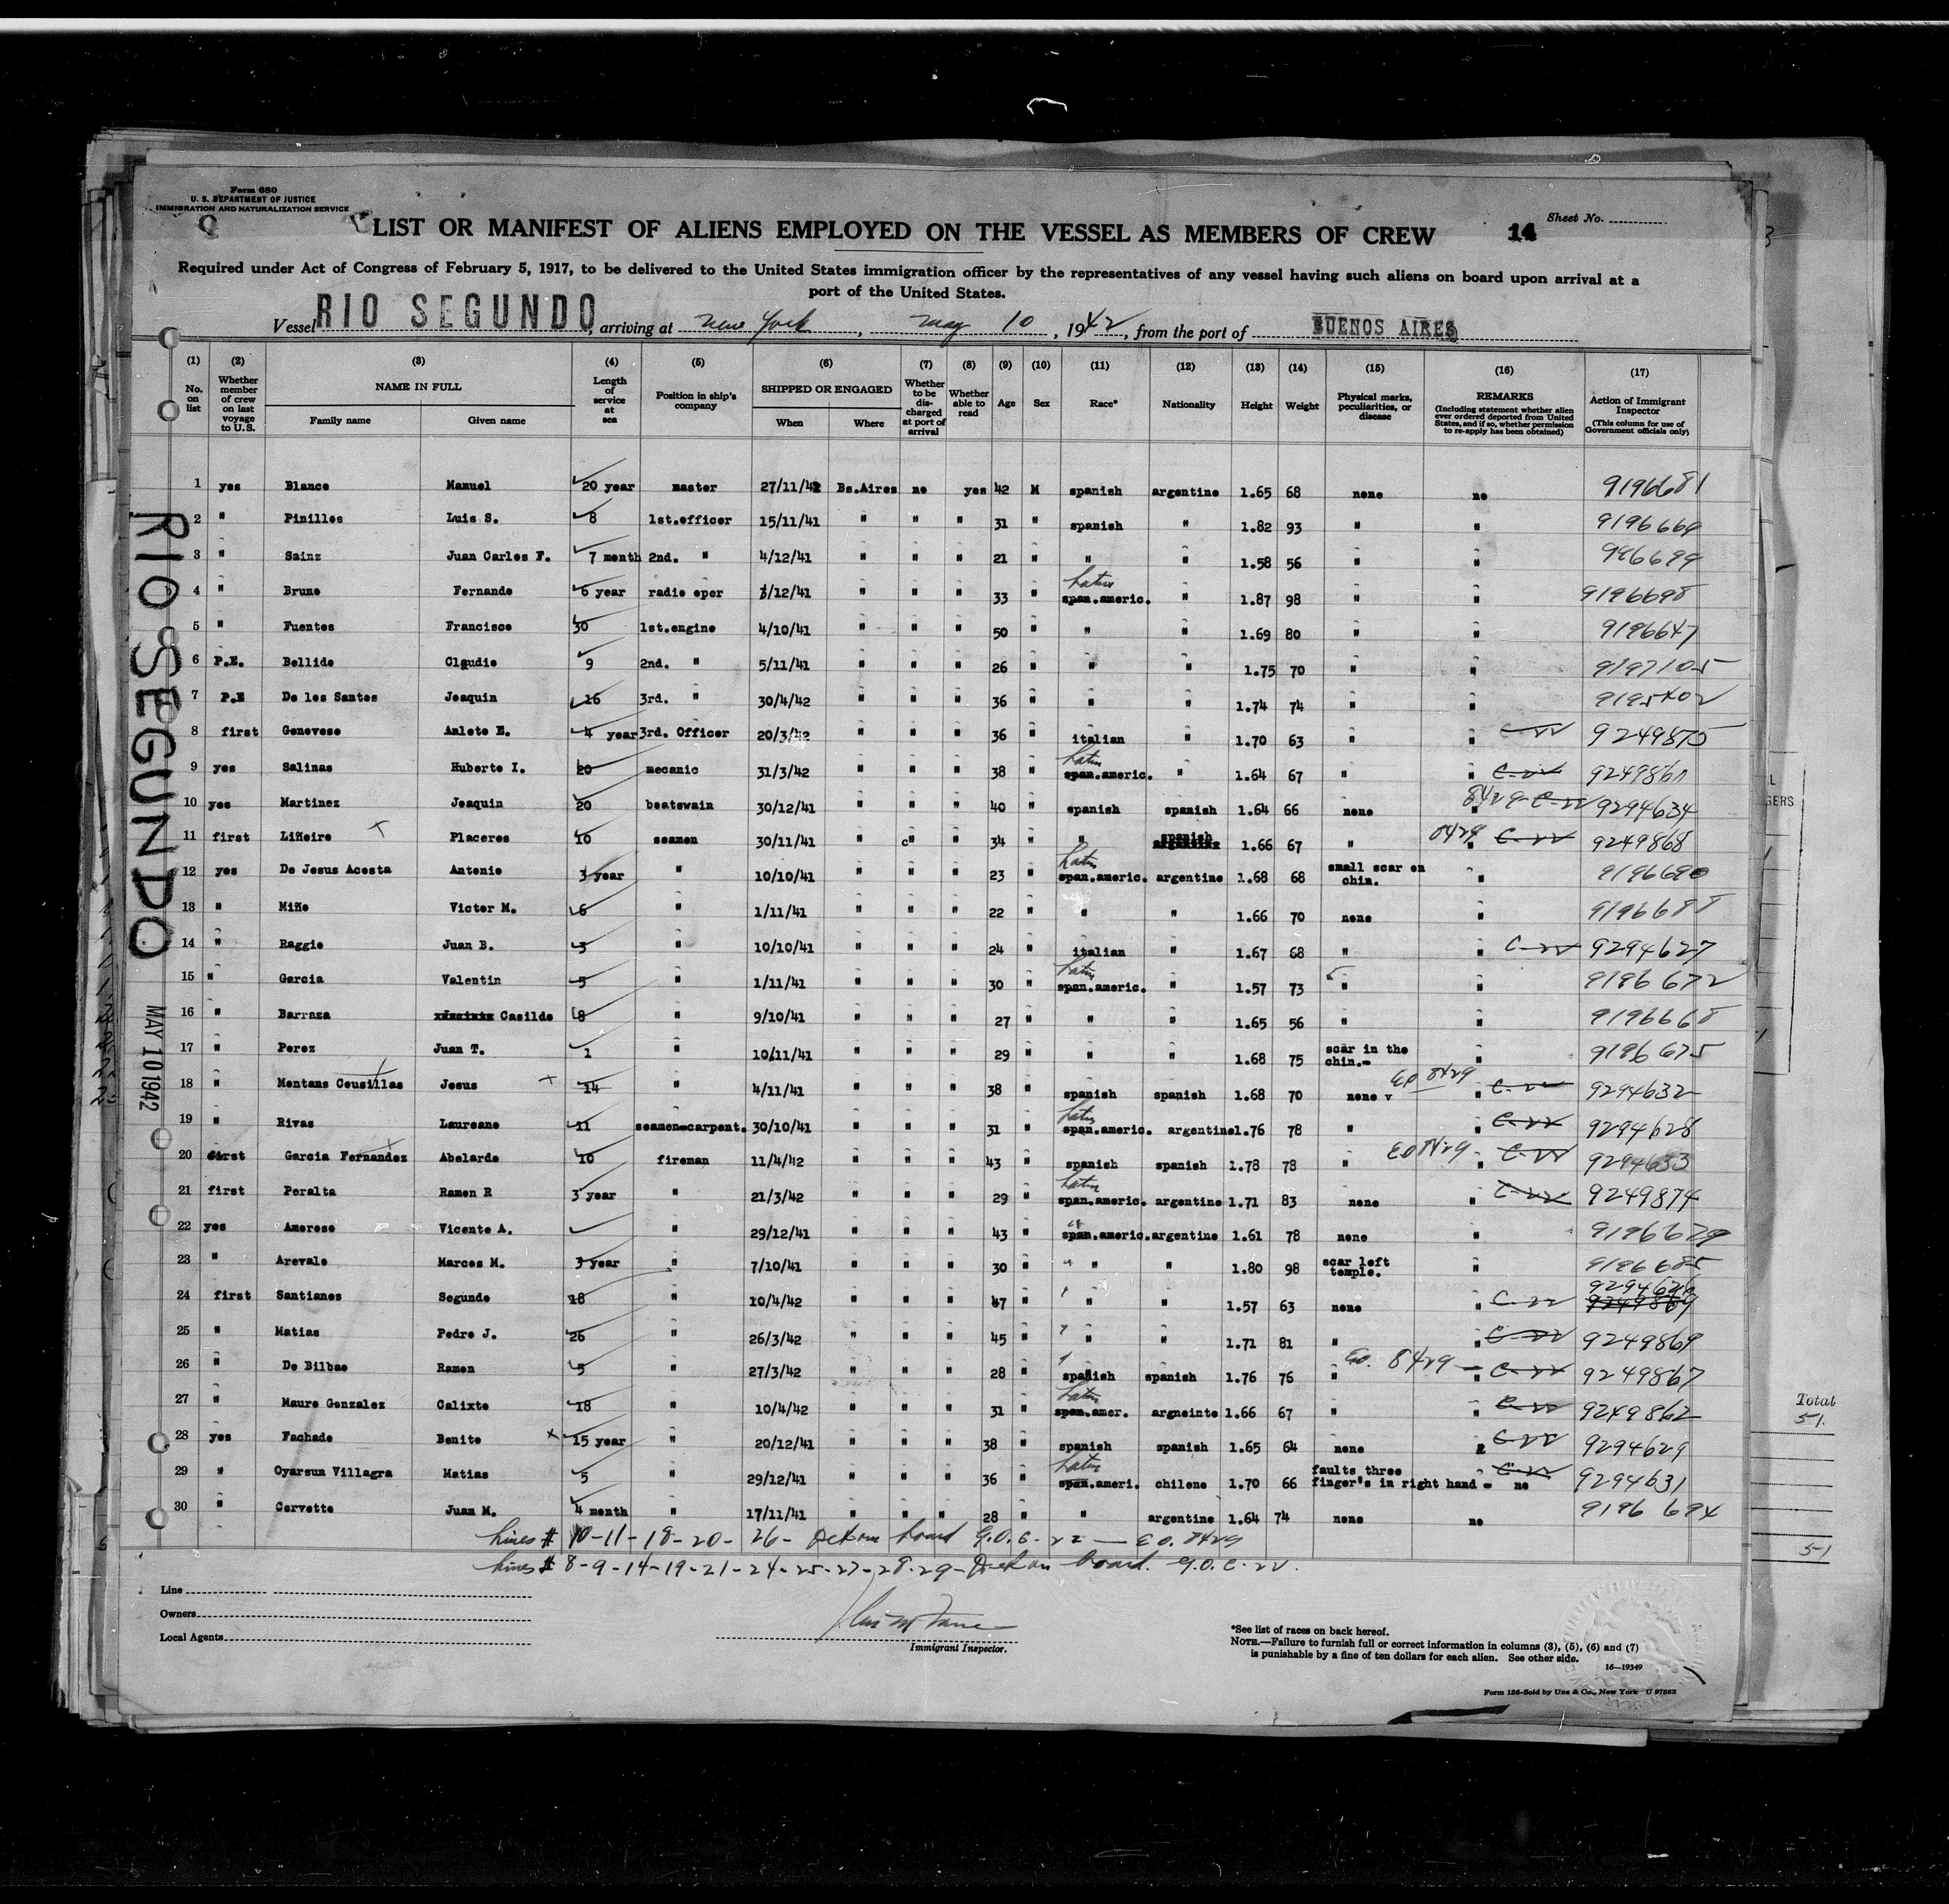 Form 680
U. S. DEPARTMENT OF JUSTICE
IMMIGRATION AND NATURALIZATION SERVICE
Sheet No.
LIST OR MANIFEST OF ALIENS EMPLOYED ON THE VESSEL AS MEMBERS OF CREW 14
Required under Act of Congress of February 5, 1917, to be delivered to the United States immigration officer by the representatives of any vessel having such aliens on board upon arrival at a
port of the United States.
Vessel RIO SEGUNDO, arriving at New York, May 10, 1942, from the port of BUENOS AIRES
(1) No. on list (2) Whether member of crew on last voyage to U.S. (3) NAME IN FULL Family name Given name (4) Length of service at sea (5) Position in ship's company (6) SHIPPED OR ENGAGED When Where (7) Whether to be discharged at port of arrival (8) Whether able to read (9) Age (10) Sex (11) Race* (12) Nationality (13) Height (14) Weight (15) Physical marks, peculiarities, or disease (16) REMARKS (Including statement whether alien ever ordered deported from United States, and if so, whether permission to re-apply has been obtained) (17) Action of Immigrant Inspector (This column for use of Government officials only)
1 yes Blanco Manuel 20 year master 27/11/42 Bs.Aires no yes 42 M spanish argentine 1.65 68 none no 9196681
2 " Pinilles Luis S. 8 1st.officer 15/11/41 " " " 31 " spanish " 1.82 93 " " 9196669
3 " Sainz Juan Carlos F. 7 month 2nd. " 4/12/41 " " " 21 " " " 1.58 56 " " 996699
4 " Bruno Fernando 6 year radio oper /12/41 " " " 33 " Latin span.americ. " 1.87 98 " " 9196698
5 " Fuentes Francisco 30 1st.engine 4/10/41 " " " 50 " " " 1.69 80 " " 9196647
6 P.E. Bellido Claudio 9 2nd. " 5/11/41 " " " 26 " " " 1.75 70 " " 9197105
7 P.E De los Santos Joaquin 16 3rd. " 30/4/42 " " " 36 " " " 1.74 74 " " 9195402
8 first Genovese Anleto E. 4 year 3rd. Officer 20/3/42 " " " 36 " italian " 1.70 63 " " C-22 9249875
9 yes Salinas Huberto I. 20 mecanic 31/3/42 " " " 38 " Latin span.americ. " 1.64 67 " " C-22 924986
10 yes Martinez Joaquin 20 boatswain 30/12/41 " " " 40 " spanish spanish 1.64 66 none " 8429 C-22 9294634
11 first Liñeire Placeres 10 seamen 30/11/41 " c" " 34 " " spanish 1.66 67 " 8429 " C-22 9249868
12 yes De Jesus Acosta Antonio 3 year " 10/10/41 " " " 23 " Latin span.americ. argentine 1.68 68 small scar on chin. " 9196690
13 " Miño Victor M. 6 " 1/11/41 " " " 22 " " " 1.66 70 none " 9196688
14 " Raggio Juan B. 3 " 10/10/41 " " " 24 " italian " 1.67 68 " " C-22 9294627
15 " Garcia Valentin 5 " 1/11/41 " " " 30 " Latin span.americ. " 1.57 73 " " 9196672
16 " Barraza Casildo 8 " 9/10/41 " " " 27 " " " 1.65 56 " " 9196668
17 " Perez Juan T. 1 " 10/11/41 " " " 29 " " " 1.68 75 scar in the chin.- " 9196675
18 " Montans Cousillas Jesus 14 " 4/11/41 " " " 38 " spanish spanish 1.68 70 none v EO 8429 " C-22 9294632
19 " Rivas Laureano 11 seamen-carpent. 30/10/41 " " " 31 " Latin span.americ. argentine 1.76 78 " " C-22 9294628
20 first Garcia Fernandez Abelardo 10 fireman 11/4/42 " " " 43 " spanish spanish 1.78 78 " EO 8429 " C-22 9294633
21 first Peralta Ramon R 3 year " 21/3/42 " " " 29 " Latin span.americ. argentine 1.71 83 none " C-22 9249874
22 yes Amoroso Vicente A. " 29/12/41 " " " 43 " " span.americ. argentine 1.61 78 none " 9196679
23 " Arevalo Marcos M. 3 year " 7/10/41 " " " 30 " " " 1.80 98 scar left temple. " 9196685
24 first Santianes Segundo 18 " 10/4/42 " " " 47 " " " 1.57 63 none " C-22 9294626 9249869
25 " Matias Pedro J. 26 " 26/3/42 " " " 45 " " " 1.71 81 " " C-22 9249869
26 " De Bilbao Ramon 5 " 27/3/42 " " " 28 " spanish spanish 1.76 76 " Eo. 8429 - " C-22 9249867
27 " Mauro Gonzalez Calixto 18 " 10/4/42 " " " 31 " Latin span.amer. argneinte 1.66 67 " " C-22 9249862
28 yes Fachado Benito 15 year " 20/12/41 " " " 38 " spanish spanish 1.65 64 none C-22 9294629
29 " Oyarsun Villagra Matias 5 " 29/12/41 " " " 36 " Latin span.ameri. chilene 1.70 66 faults three finger's in right hand - no C-22 9294631
30 " Corvetto Juan M. 4 month " 17/11/41 " " " 28 " " argentine 1.64 74 none no 9196 694
Lines # 10-11-18-20-26- Det on board G.O.C-22 — EO. 8429
Lines # 8-9-14-19-21-24-25-27-28-29- Det on board. G.O.C-22.
Line
Owners
Local Agents
Immigrant Inspector.
*See list of races on back hereof.
NOTE.—Failure to furnish full or correct information in columns (3), (5), (6) and (7)
is punishable by a fine of ten dollars for each alien. See other side.
16—19349
Form 136-Sold by Unz & Co., New York U 97882
RIO SEGUNDO
MAY 10 1942
Total
51.
51